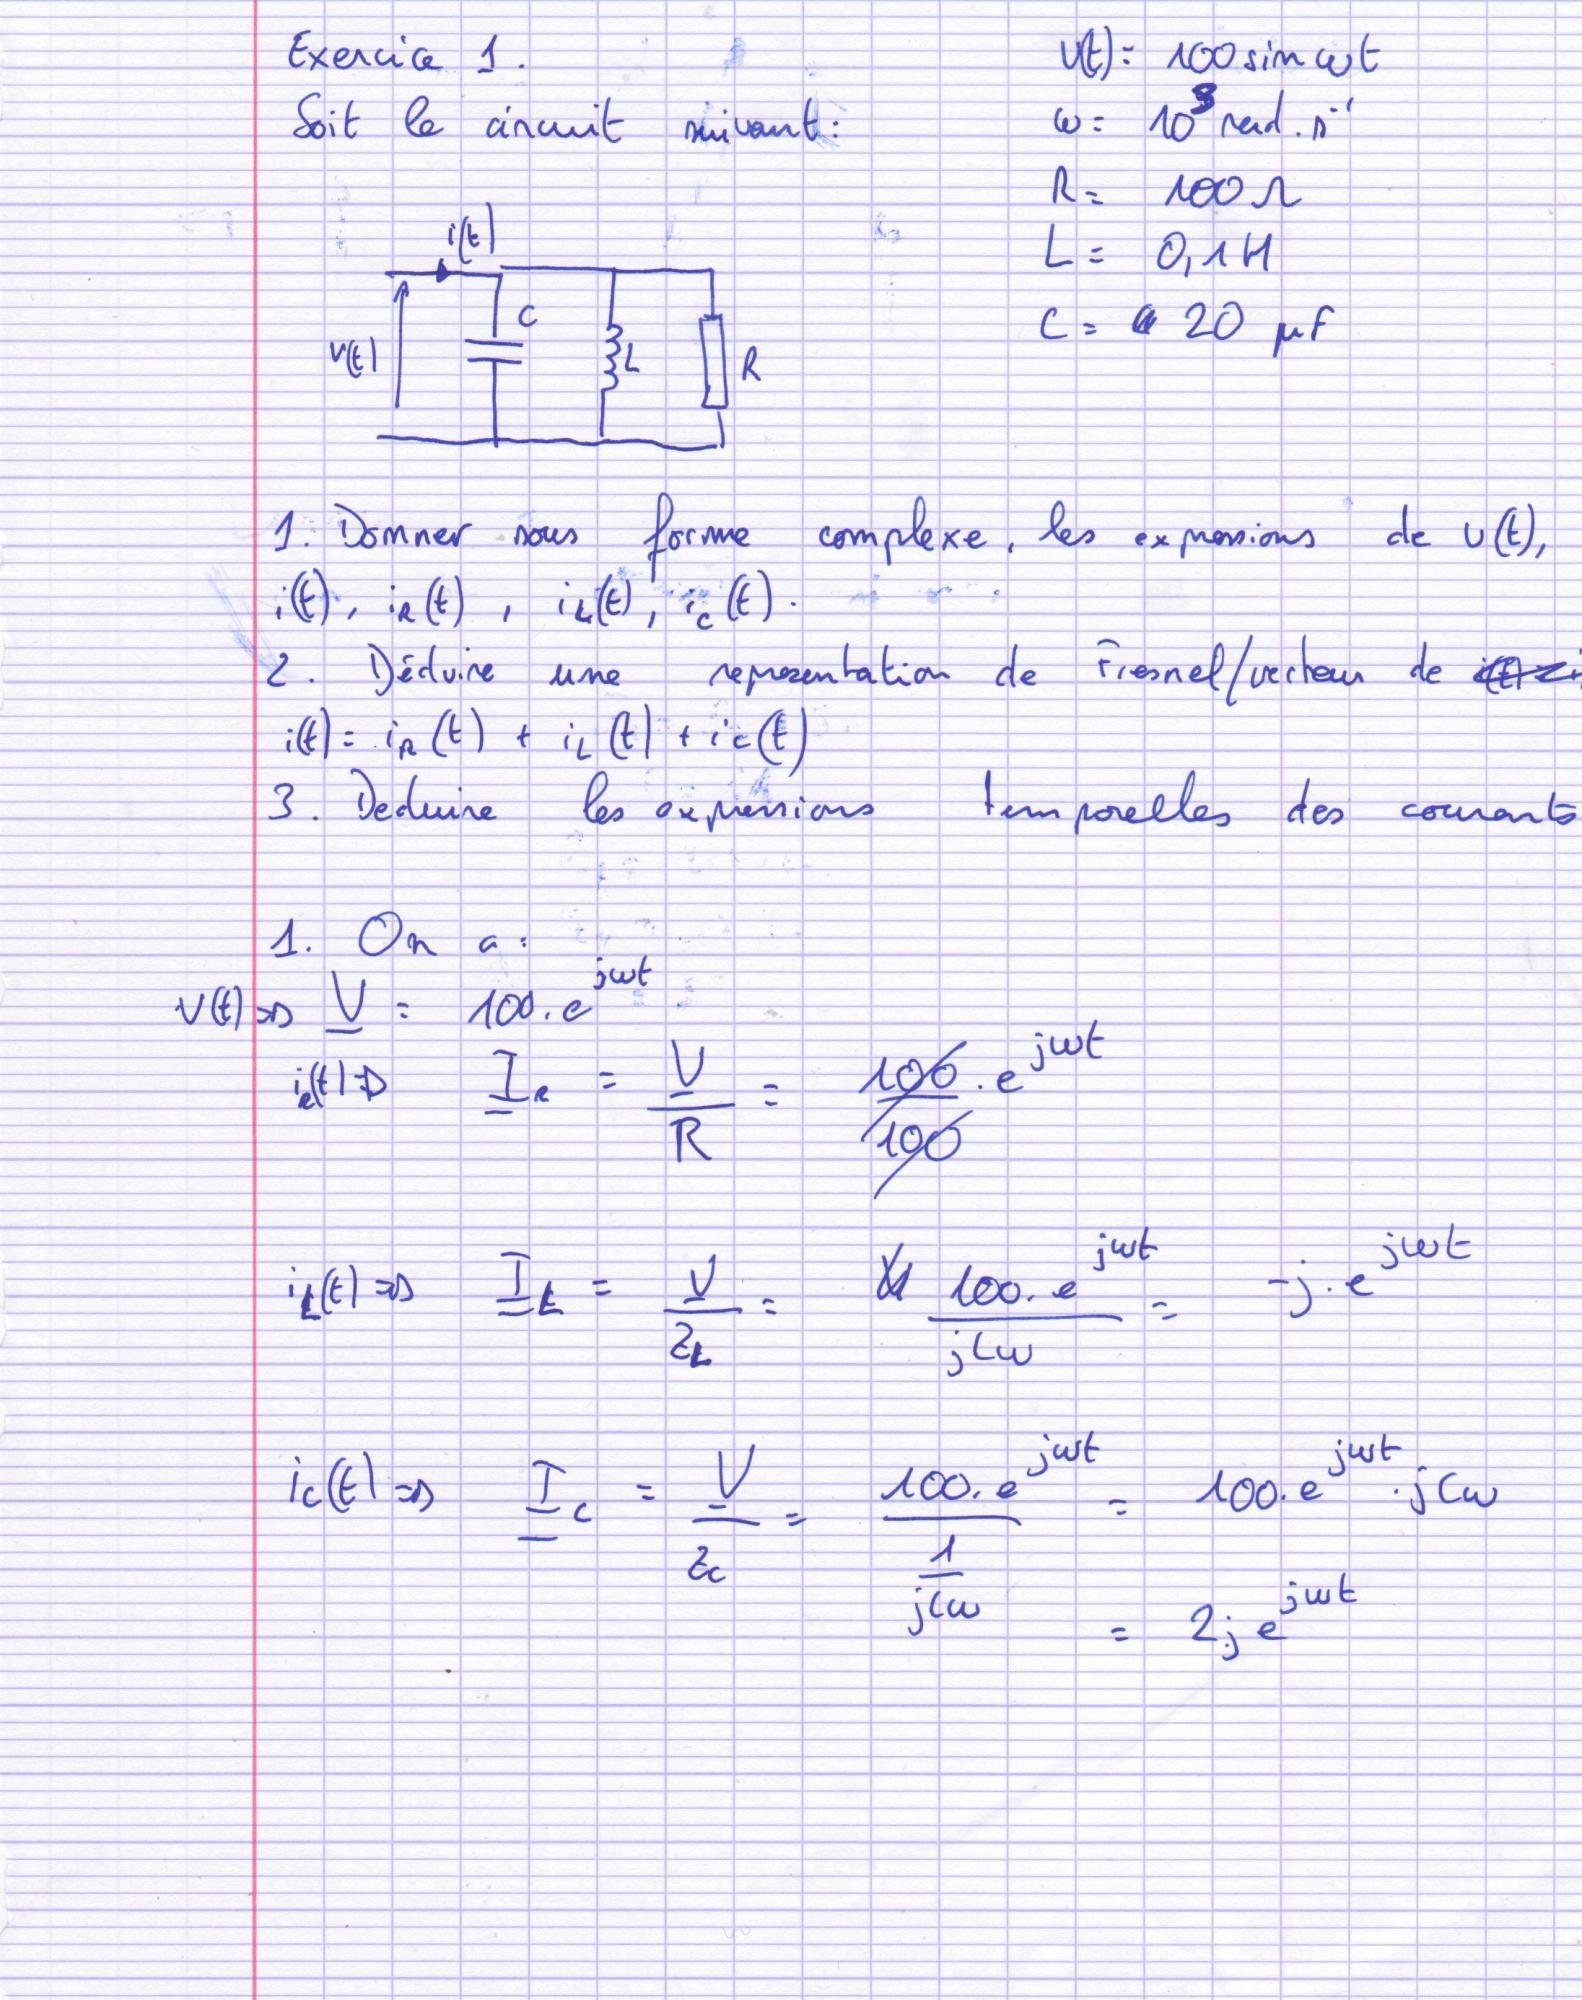 Exercice 1.
V(t) = 100 sin ωt
Soit le circuit suivant :
ω = 10³ rad.s⁻¹
R = 100 Ω
L = 0,1 H
C = 20 μF
i(t)
C
V(t)
L
R
1. Donner sous forme complexe, les expressions de V(t),
i(t), i_R(t), i_L(t), i_C(t).
2. Déduire une representation de Fresnel/vecteur de
i(t) = i_R(t) + i_L(t) + i_C(t)
3. Deduire les expressions temporelles des courants
1. On a :
V(t) => V = 100.e^{jωt}
i_R(t) => I_R = V/R = 100/100 . e^{jωt}
i_L(t) => I_L = V/Z_L = 100.e^{jωt}/jLω = -j.e^{jωt}
i_C(t) => I_C = V/Z_C = 100.e^{jωt}/(1/jCω) = 100.e^{jωt}.jCω
= 2j e^{jωt}